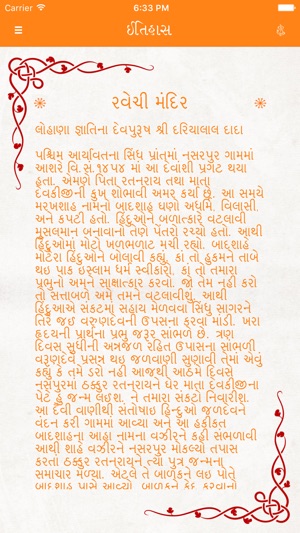 Carrier
6:33 PM
ઈતિહાસ
રવેચી મંદિર
લોહાણા જ્ઞાતિના દેવપુરૂષ શ્રી દરિયાલાલ દાદા
પશ્ચિમ આર્યાવતના સિંધ પ્રાંતમાં નસરપુર ગામમાં
આશરે વિ.સં.૧૪૫૪ માં આ દેવાંશી પ્રગટ થયા
હતા. એમણે પિતા રતનરાય તથા માતા
દેવકીજીની કુખ શોભાવી અમર કર્યા છે. આ સમયે
મરખશાહ નામનો બાદશાહ ઘણો અધર્મિ, વિલાસી,
અને કપટી હતો. હિંદુઓને બળાત્કારે વટલાવી
મુસલમાન બનાવાનો તેણે પેંતરો રચ્યો હતો. આથી
હિંદુઓમાં મોટો ખળભળાટ મચી રહ્યો. બાદશાહે
મોટેરા હિંદુઓને બોલાવી કહ્યું, કાં તો હુકમને તાબે
થઇ પાક ઇસ્લામ ધર્મ સ્વીકારો. કાં તો તમારા
પ્રભુનો અમને સાક્ષાત્કાર કરવો. જો તેમ નહી કરો
તો સત્તાબળે અમે તમને વટલાવીશું. આથી
હિંદુઓએ સંકટમાં સહાય મેળવવા સિંધુ સાગરને
તીરે જઈ વરુણદેવની ઉપાસના કરવા માંડી. ખરા
હ્રદયની પ્રાર્થના પ્રભુ જરૂર સાંભળે છે. ત્રણ
દિવસ સુધીની અન્નજળ રહિત ઉપાસના સાંભળી
વરૂણદેવે પ્રસન્ન થઇ જળવાણી સુણાવી તેમાં એવું
કહ્યું કે તમે ડરો નહી આજથી આઠમે દિવસે
નસરપુરમાં ઠક્કુર રતનરાયને ઘેર માતા દેવકીજીના
પેટે હું જન્મ લઈશ. ને તમારા સંકટો નિવારીશ.
આ દેવી વાણીથી સંતોષાઇ હિન્દુઓ જળદેવને
વંદન કરી ગામમાં આવ્યા અને આ હકીકત
બાદશાહના આહા નામના વઝીરને કહી સંભળાવી
આથી શાહે વઝીરને નસરપુર મોકલ્યો તપાસ
કરતાં ઠક્કુર રતનરાયને ત્યાં પુત્ર જન્મના
સમાચાર મળ્યા. એટલે તે બાળકને લઇ પોતે
બાદશાહ પાસે આવ્યો. બાળકને કેદ કરવાનો